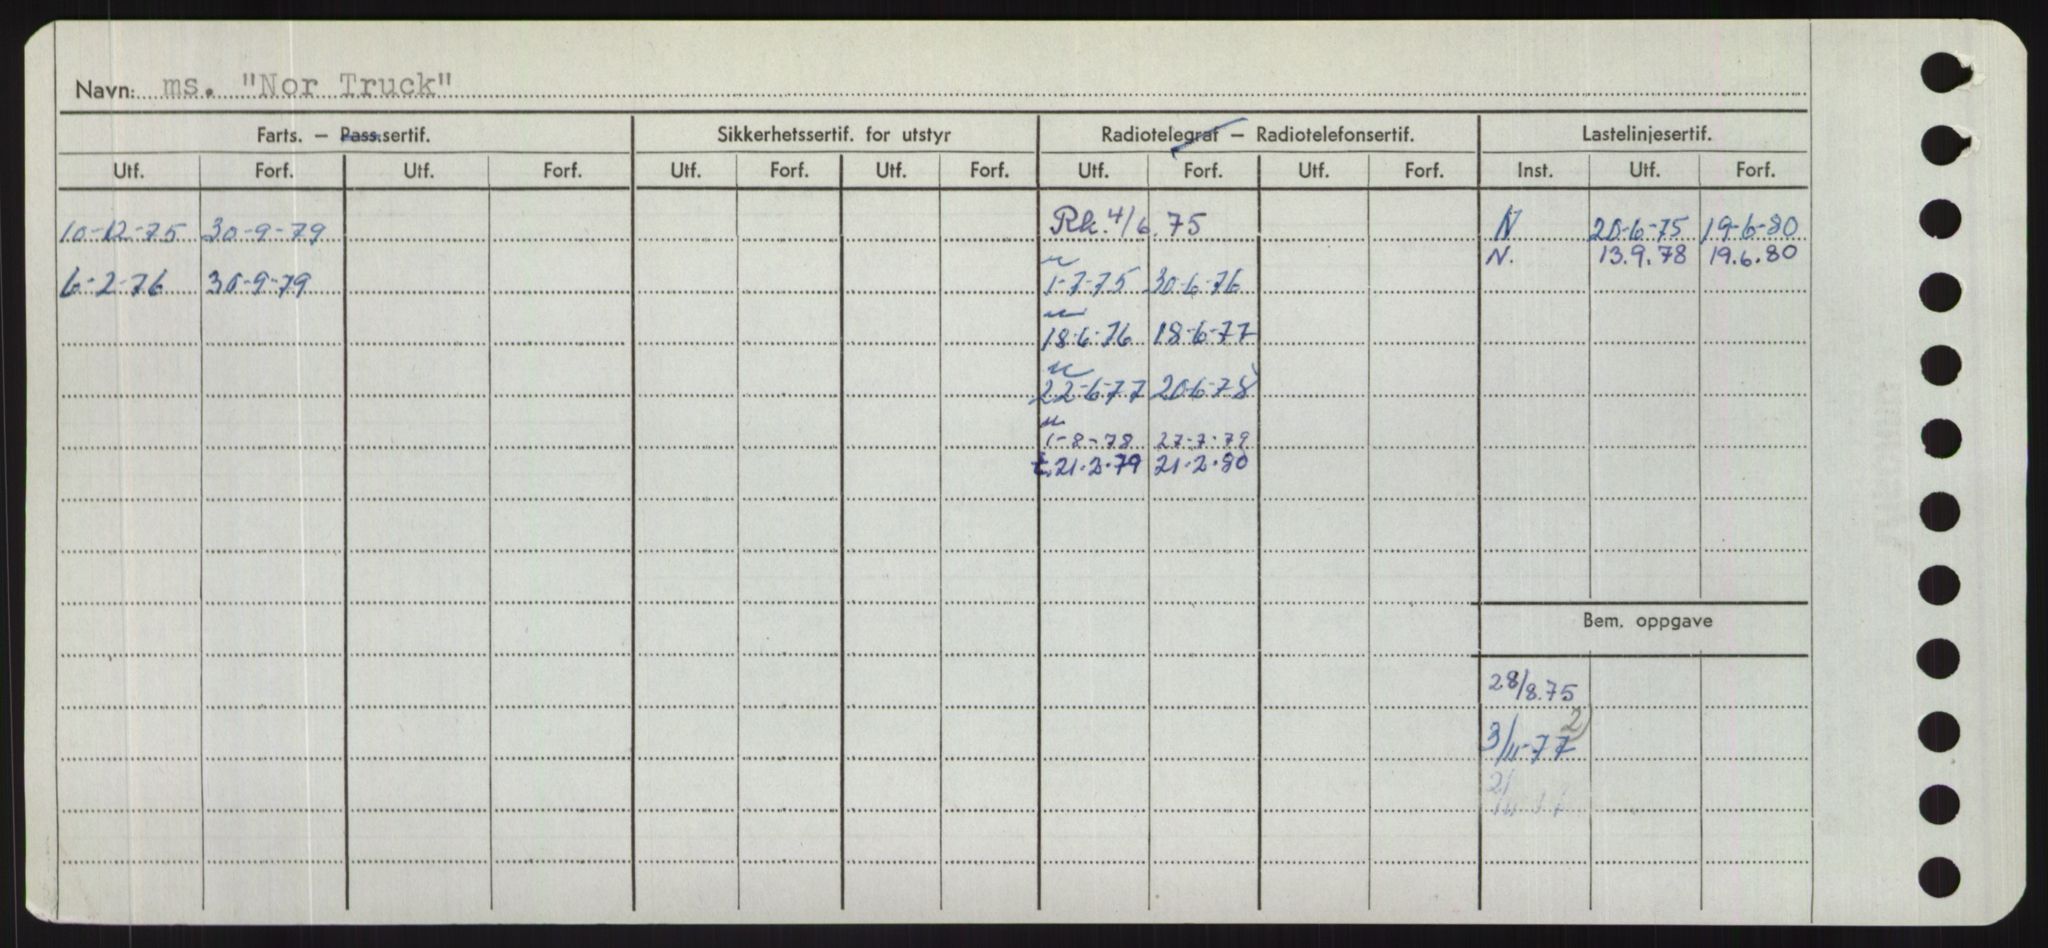 Navn: ms. "Nor Truck"
Farts. — Pass.sertif. Sikkerhetssertif. for utstyr Radiotelegraf — Radiotelefonsertif. Lastelinjesertif.
Utf. Forf. Utf. Forf. Utf. Forf. Utf. Forf. Utf. Forf. Utf. Forf. Inst. Utf. Forf.
10-12-75 30-9-79 Rk. 4/6.75 N 20-6-75 19-6-80
N. 13.9.78 19.6.80
6-2-76 30-9-79 1-7-75 30-6-76
18-6-76 18-6-77
22-6-77 20-6-78
1-8-78 27-7-79
t.21.2.79 21.2.80
Bem. oppgave
28/8.75
3/11-77 2)
2)